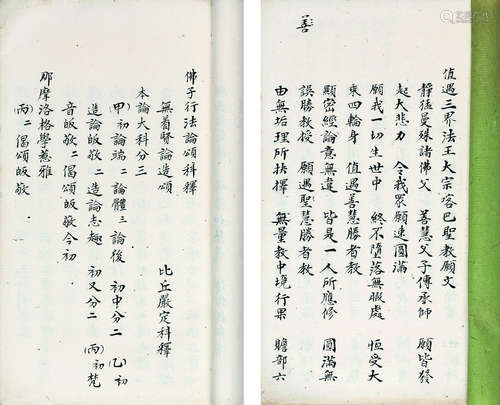 善
值遇三界法王大宗客巴聖教願文
靜猛曼殊諸佛父　善慧父子傳承師　願皆發
起大悲力　令我眾願速圓滿
願我一切生世中　終不墮落無暇處　恒受大
乘四輪身　值遇善慧勝者教
顯密經論意無違　皆是一人所應修　圓滿無
誤勝教授　願遇聖慧勝者教
由無垢理所抉擇　無量教中境行果　贍部六
佛子行法論頌科釋
無着賢論造頌
比丘嚴定科釋
本論大科分三
(甲)初論端二論體三論後　初中分二　(乙)初
造論皈敬二造論志趣　初又分二　(丙)初梵
音皈敬二偈頌皈敬今初
那摩洛格學葱雅
(丙)二偈頌皈敬